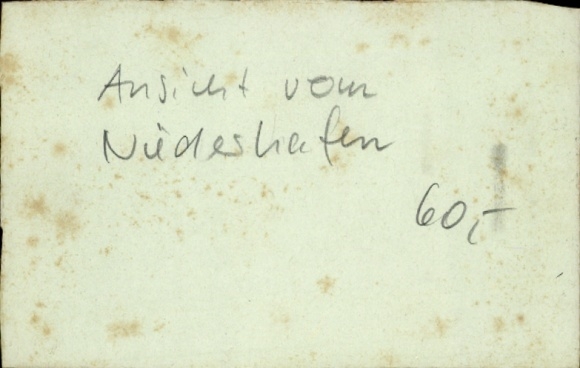 Ansicht vom
Niederhafen
60,-